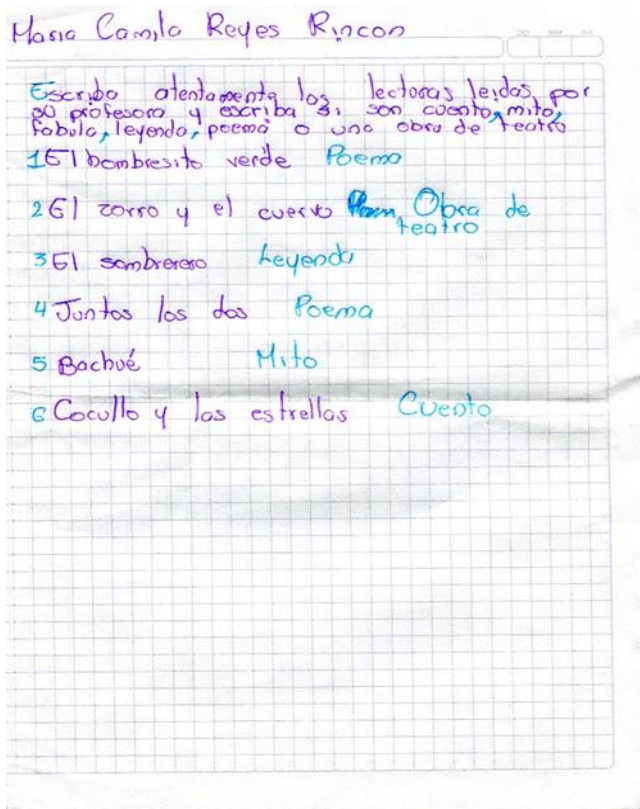 Maria Camila Reyes Rincon
DD MM AA
Escriba atentamente las lectoras leidas por
su profesora y escriba si son cuento, mito,
fabula, leyenda, poema o una obra de teatro
1 El hombresito verde Poema
2 El zorro y el cuervo Obra de
teatro
3 El sombrerero Leyenda
4 Juntos los dos Poema
5 Bachué Mito
6 Cocullo y las estrellas Cuento